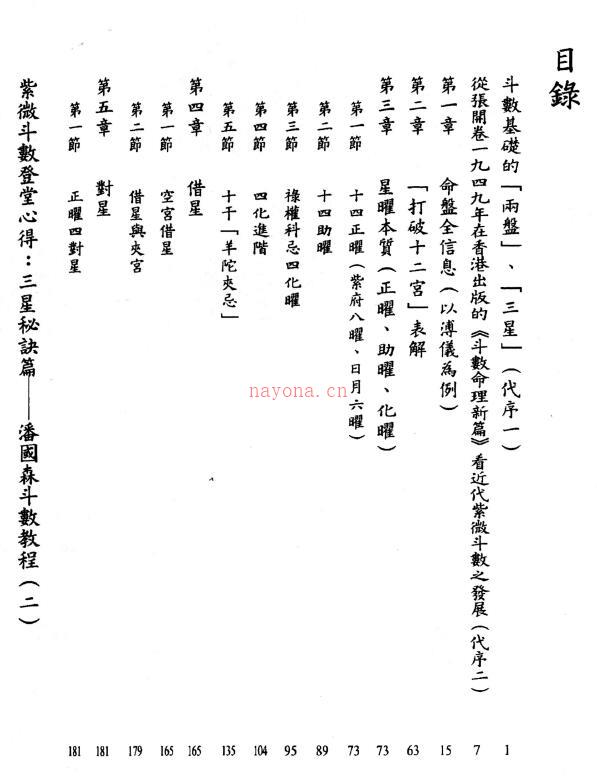 目錄
斗數基礎的「兩盤」、「三星」(代序一) 1
從張開卷一九四九年在香港出版的《斗數命理新篇》看近代紫微斗數之發展(代序二) 7
第一章 命盤全信息(以溥儀為例) 15
第二章 「打破十二宮」表解 63
第三章 星曜本質(正曜、助曜、化曜) 73
第一節 十四正曜(紫府八曜、日月六曜) 73
第二節 十四助曜 89
第三節 祿權科忌四化曜 95
第四節 四化進階 104
第五節 十干「羊陀夾忌」 135
第四章 借星 165
第一節 空宮借星 165
第二節 借星與夾宮 179
第五章 對星 181
第一節 正曜四對星 181
紫微斗數登堂心得:三星秘訣篇——潘國森斗數教程(二)
nayona.cn